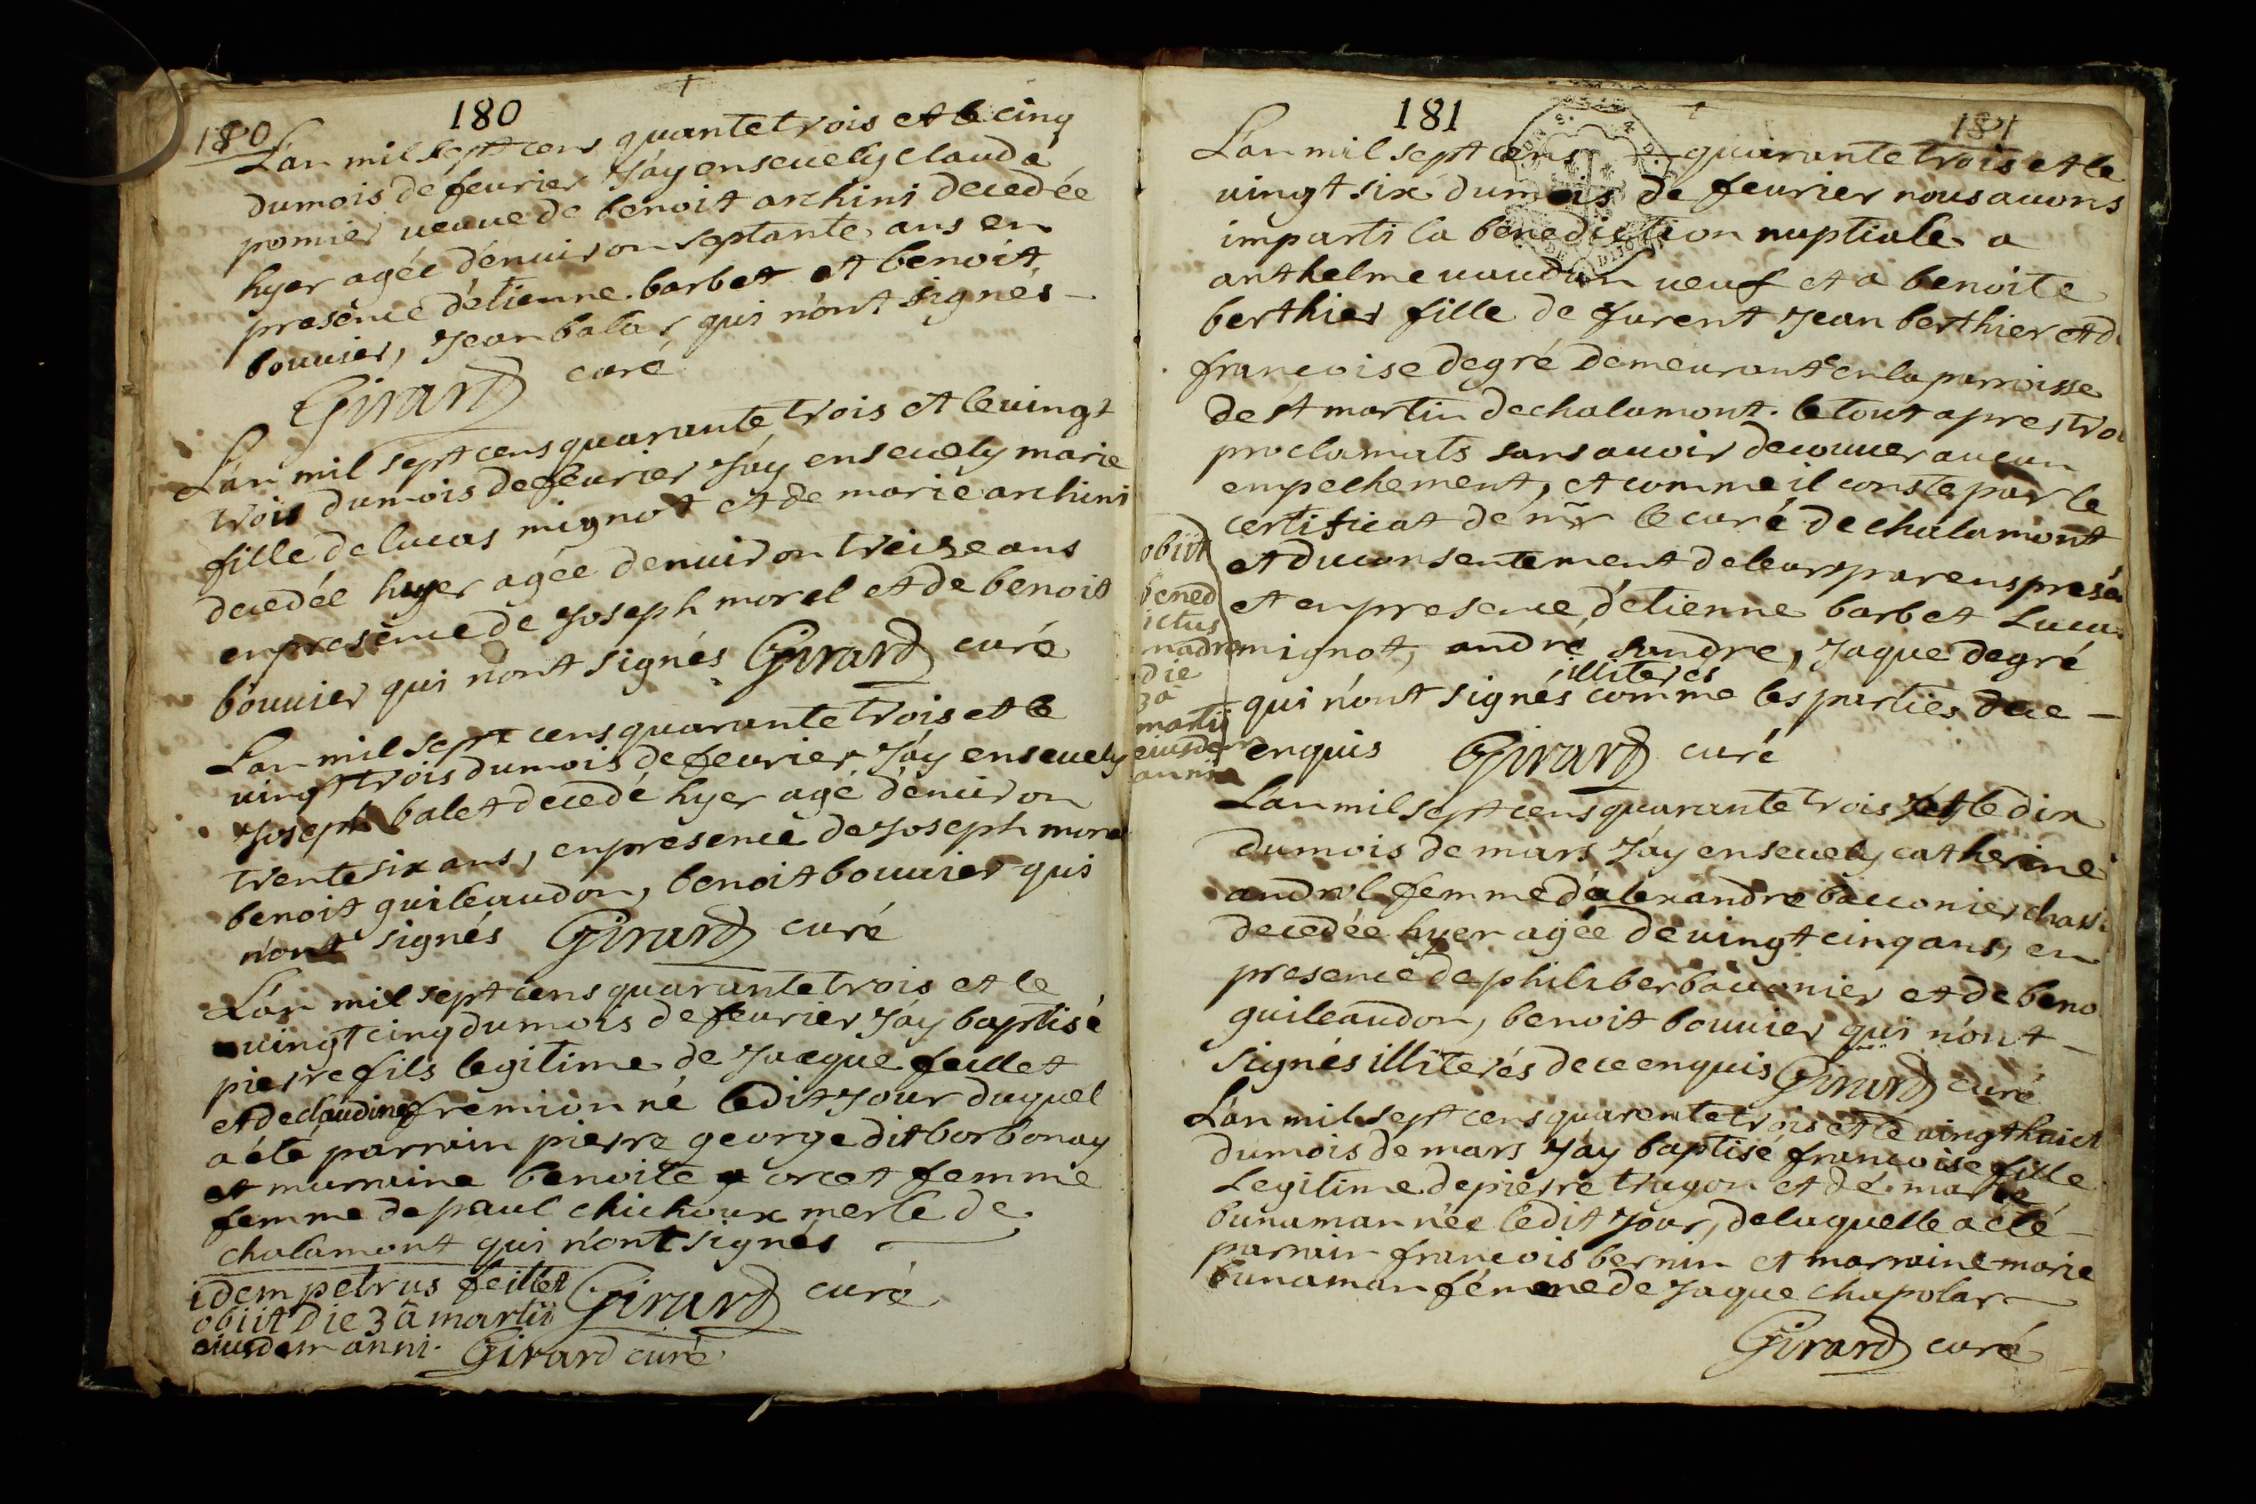 180
180
L'an mil sept cens quante trois et le cinq
du mois dé feurier J'ay enseuely clauda
pomier ueuue de benoit archini decedée
hyer agée d'enuiron septante ans en
presence d'etienne barbet et benoit
bouuier, Jean balas qui n'ont signés
Girard curé
L'an mil sept cens quarante trois et le uingt
trois du mois de feurier J'ay enseuely marie
fille de lucas mignot et de marie archini
decedée hyer agée denuiron treize ans
en presence de Joseph morel et de benoit
bouuier qui n'ont signés Girard curé
L'an mil sept cens quarante trois et le
uingt trois du mois de feurier J'ay enseuely
Joseph balet decedé hyer agé d'enuiron
trente six ans, en presence de Joseph morel
benoit guileaudon, benoit bouuier qui
n'ont signés Girard curé
L'an mil sept cens quarante trois et le
uingt cinq du mois de feurier J'ay baptisé
pierre fils legitime de Jacque feillet
et de claudine fremion né ledit Jour duquel
a été parrain pierre george dit borbonay
et marraine benoite orcet femme
femme de paul chichoux merle de
chalamont qui n'ont signés
idem petrus feillet Girard curé
obiit die 3â martii
eiusdem anni. Girard curé
181
181
L'an mil sept cens quarante trois et le
uingt six du mois de feurier nous auons
imparti la benediction nuptiale a
anthelme uaudan ueuf et a benoite
berthier fille de furent Jean berthier et d
francoise degré demeurante en la parroisse
de st martin de chalamont. le tout apres troi
proclamats sans auoir decouuer aucun
empechement, et comme il conste par le
certificat de mr le curé de chalamont
et du consentement de leurs parens presé
et en presence d'etienne barbet Lucas
mignot, andre sandre, Jaque degré
illiterés
qui n'ont signés comme les parties de ce
enquis Girard curé
obiit
bened
ictus
madre
die
3â
martij
eiusdem
anni
L'an mil sept cens quarante trois et le dix
du mois de mars J'ay enseuely catherine
androl femme d'alexandre bacconier chass
decedée hyer agée de uingt cinq ans, en
presence de philiber bacconier et de beno
guileaudon, benoit bouuier qui n'ont
signés illiterés de ce enquis Girard curé
L'an mil sept cens quarente trois et le uingt huict
du mois de mars J'ay baptisé francoise fille
Legitime de pierre trugon et de marie
bunaman née ledit Jour, de laquelle a eté
parrain francois bernin et marraine marie
bunaman fémme de Jaque chapolar
Girard curé